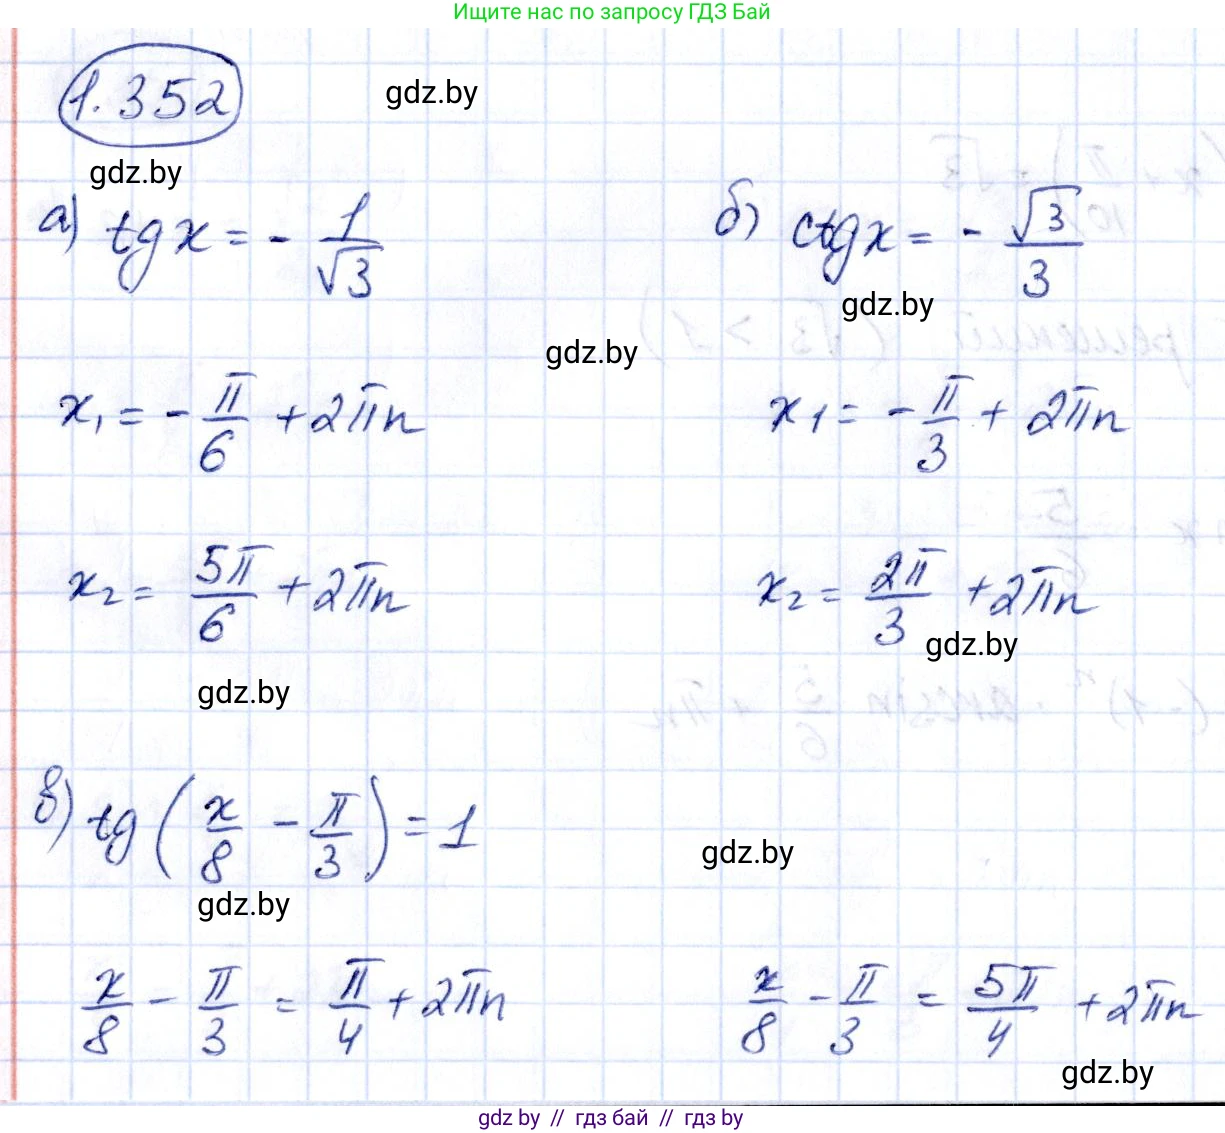 Ищите нас по запросу ГДЗ Бай
1.352
gdz.by
gdz.by
а) tg x = - 1/√3
б) ctg x = - √3/3
gdz.by
gdz.by
x₁ = - π/6 + 2πn
x1 = - π/3 + 2πn
x₂ = 5π/6 + 2πn
x₂ = 2π/3 + 2πn
gdz.by
gdz.by
в) tg (x/8 - π/3) = 1
gdz.by
gdz.by
x/8 - π/3 = π/4 + 2πn
x/8 - π/3 = 5π/4 + 2πn
gdz.by
gdz by // гдз бай // gdz by